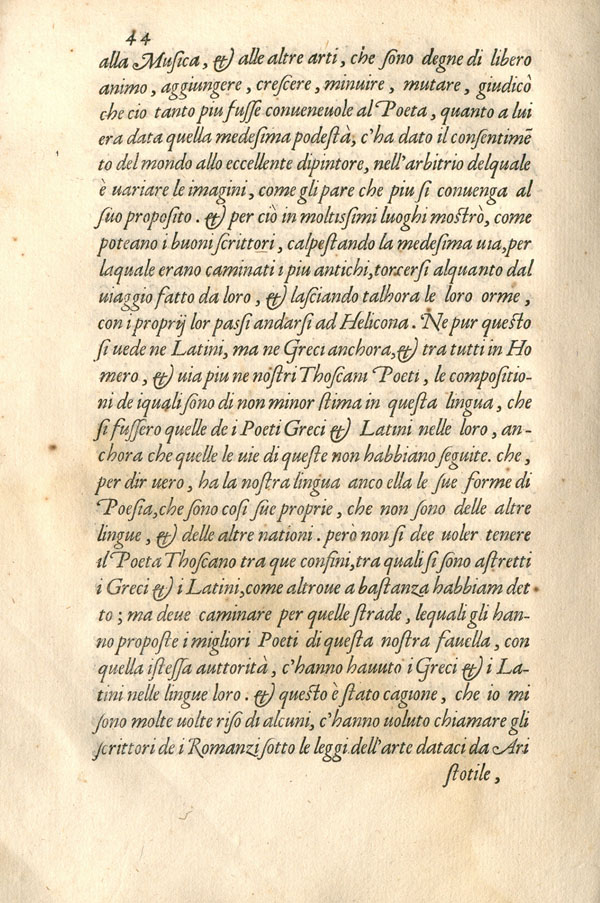 44
alla Muſica, & alle altre arti, che ſono degne di libero
animo, aggiungere, creſcere, minuire, mutare, giudicò
che cio tanto piu fuſſe conueneuole al Poeta, quanto a lui
era data quella medeſima podeſtà, c'ha dato il conſentimẽ
to del mondo allo eccellente dipintore, nell'arbitrio delquale
è uariare le imagini, come gli pare che piu ſi conuenga al
ſuo propoſito. & per ciò in moltiſſimi luoghi moſtrò, come
poteano i buoni ſcrittori, calpeſtando la medeſima uia, per
laquale erano caminati i piu antichi, torcerſi alquanto dal
uiaggio fatto da loro, & laſciando talhora le loro orme,
con i proprij lor paſſi andarſi ad Helicona. Ne pur queſto
ſi uede ne Latini, ma ne Greci anchora, & tra tutti in Ho
mero, & uia piu ne noſtri Thoſcani Poeti, le compoſitio-
ni de iquali ſono di non minor ſtima in queſta lingua, che
ſi fuſſero quelle de i Poeti Greci & Latini nelle loro, an-
chora che quelle le uie di queſte non habbiano ſeguite. che,
per dir uero, ha la noſtra lingua anco ella le ſue forme di
Poeſia, che ſono coſi ſue proprie, che non ſono delle altre
lingue, & delle altre nationi. però non ſi dee uoler tenere
il Poeta Thoſcano tra que confini, tra quali ſi ſono aſtretti
i Greci & i Latini, come altroue a baſtanza habbiam det
to; ma deue caminare per quelle ſtrade, lequali gli han-
no propoſte i migliori Poeti di queſta noſtra fauella, con
quella iſteſſa auttorità, c'hanno hauuto i Greci & i La-
tini nelle lingue loro. & queſto è ſtato cagione, che io mi
ſono molte uolte riſo di alcuni, c'hanno uoluto chiamare gli
ſcrittori de i Romanzi ſotto le leggi dell'arte dataci da Ari
ſtotile,